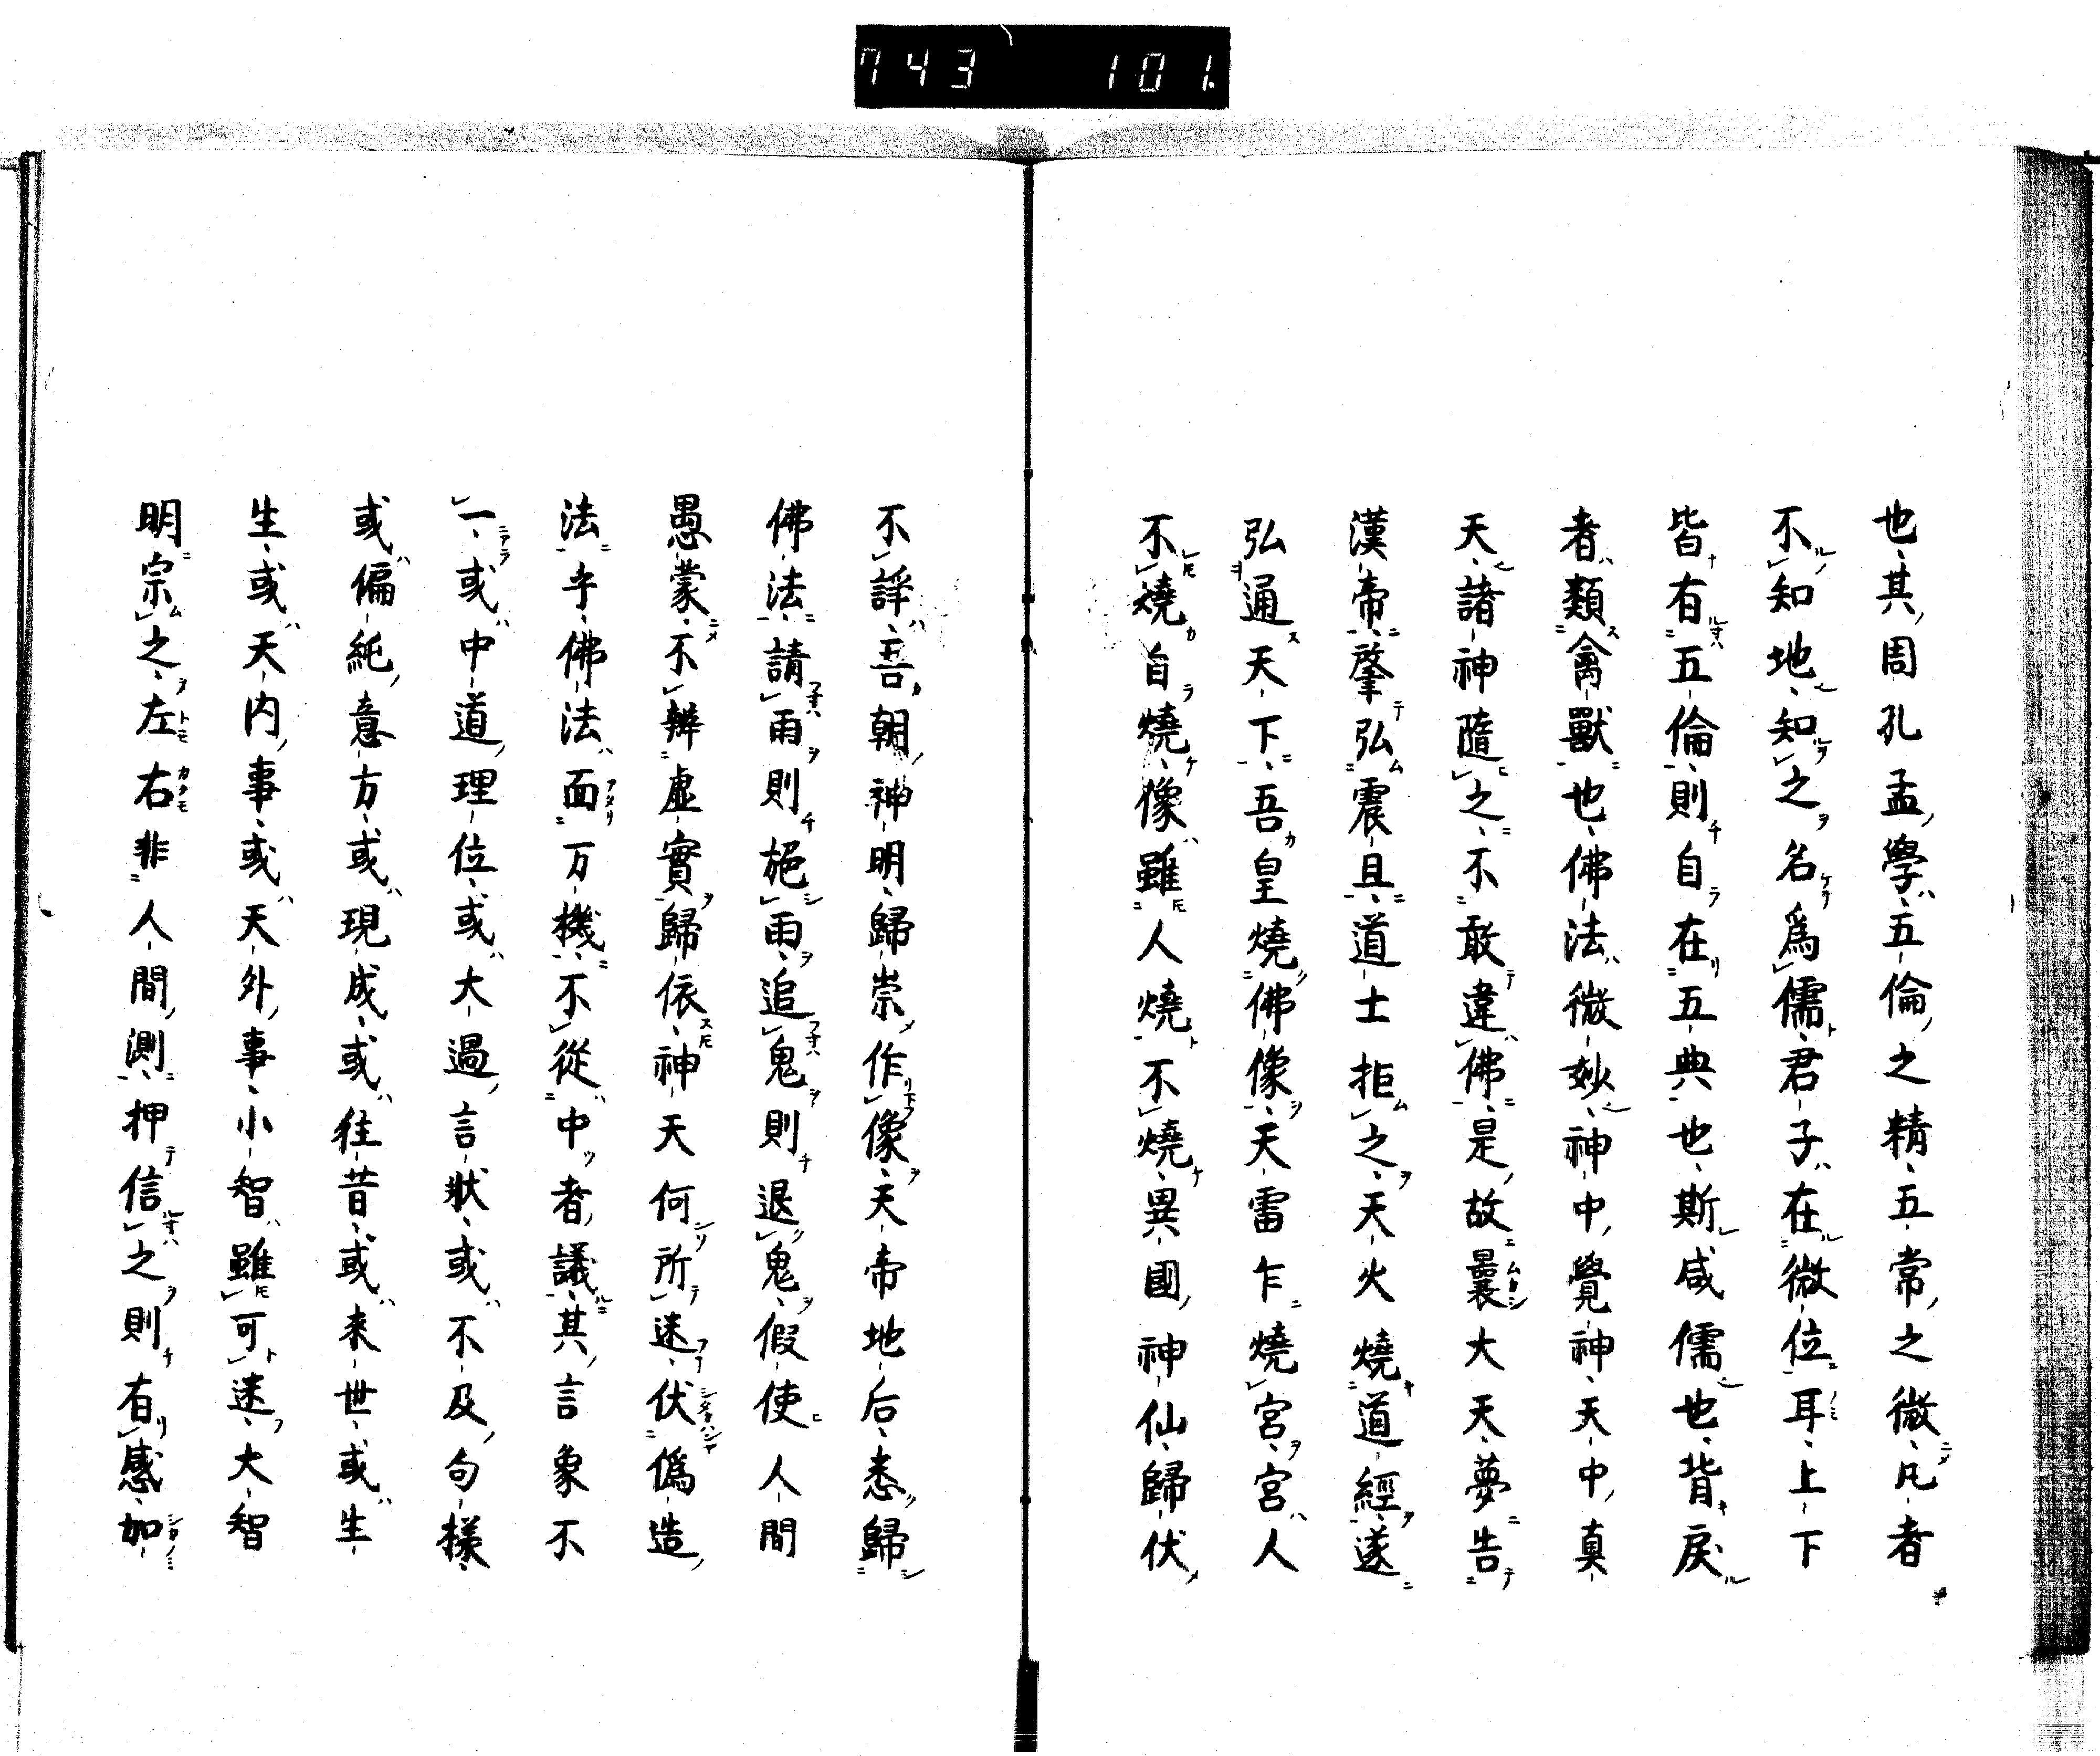 743 101.
也其周孔孟學五倫之精五常之微凡者
不知地知之名爲儒君子在微位耳上下
皆有五倫則自在五典也斯咸儒也背戻
者類禽獸也佛法微妙神中覺神天中真
天諸神隨之不敢違佛是故曩大天夢告
漢帝肇弘震旦道士拒之天火燒道經遂
弘通天下吾皇燒佛像天雷乍燒宮宮人
不燒自燒像雖人燒不燒異國神仙歸伏
不諍吾朝神明歸崇作像天帝地后悉歸
佛法請雨則施雨追鬼則退鬼假使人間
愚蒙不辨虛實歸依神天何所迷伏僞造
法乎佛法面万機不從中者議其言象不
一或中道理位或大過言狀或不及句樣
或偏純意方或現成或往昔或来世或生
生或天内事或天外事小智雖可迷大智
明宗之左右非人間測押信之則有感加